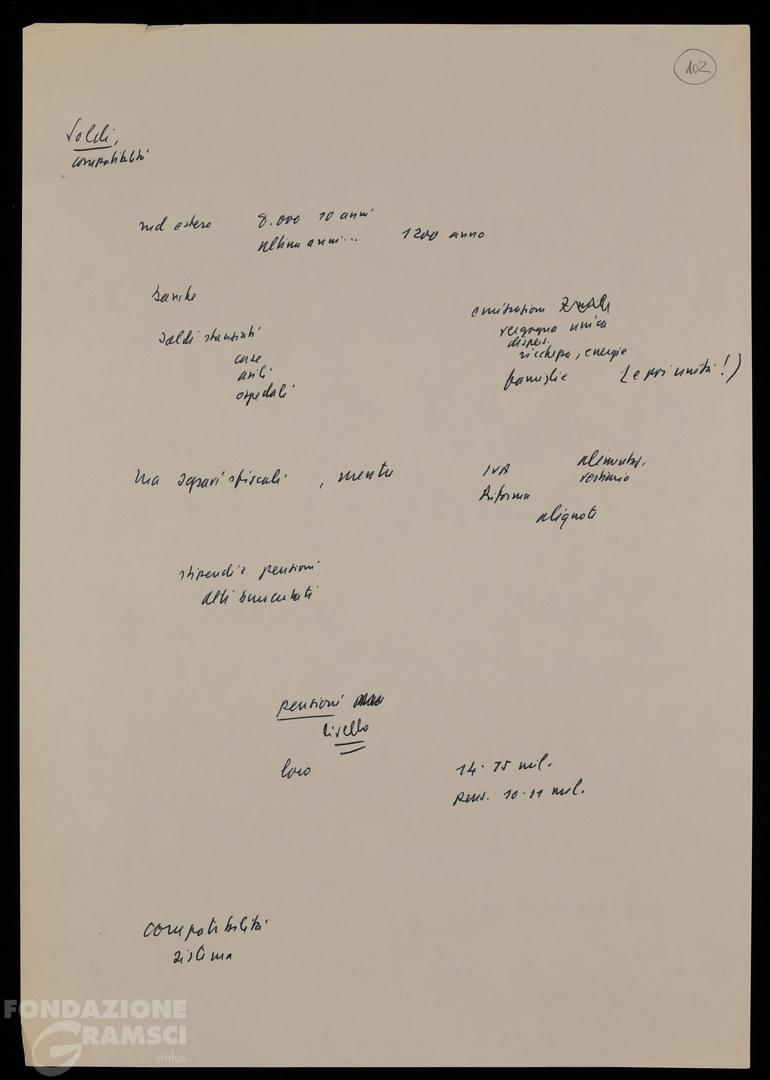 102
Soldi,
compatibilità
nel estero 8.000 10 anni
ultimi anni... 1200 anno
banche
soldi stanziati
case
asili
ospedali
emigrazione
vergogna unica
dispers.
ricchezza, energie
famiglie (e poi unità!)
ma sgravi fiscali, mentre
IVA alimentar.
vestiario
Riforma
aliquote
stipendi e pensioni
alti burocrati
pensioni
livello
loro 14-15 mil.
pens. 10-11 mil.
compatibilità
sistema
FONDAZIONE
GRAMSCI
onlus